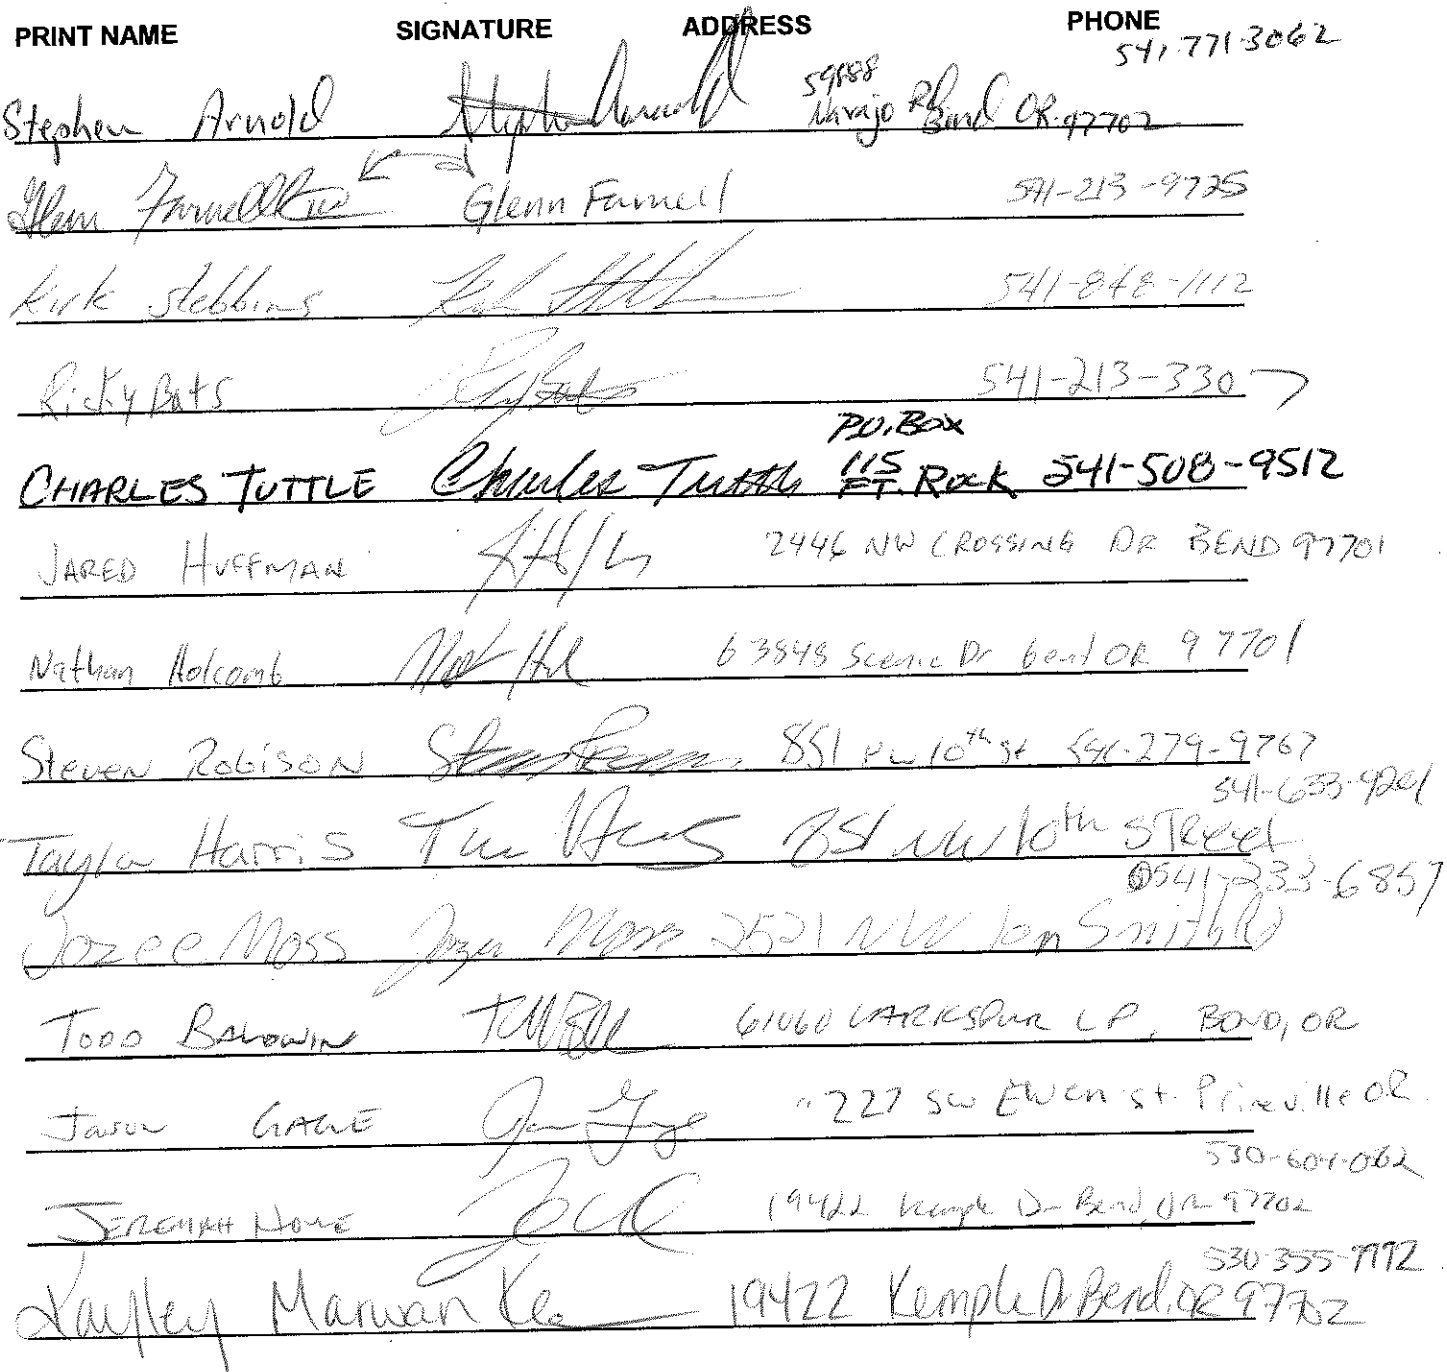 PRINT NAME SIGNATURE ADDRESS PHONE
541-771-3062
Stephen Arnold Stephen Arnold 59888 Navajo Rd Bend OR. 97702
Glenn Farnell Glenn Farnell 541-213-9725
Kirk Stebbins 541-848-1112
Ricky Bats 541-213-3307
P.O. Box
CHARLES TUTTLE Charles Tuttle 115 FT. Rock 541-508-9512
JARED HUFFMAN 2446 NW CROSSING DR BEND 97701
Nathan Holcomb 63848 Scenic Dr bend OR 97701
Steven Robison 851 10th st 541-279-9767
541-633-4201
Tayla Harris 851 NW 10th STReet
541-233-6857
Jozee Moss Jozee Moss 2521 NW Smith Rd
TODD BALDWIN 61060 LARKSPUR LP, BEND, OR
Jason GAGE 227 SW Ewen st. Prineville OR
530-604-0862
JEREMIAH 19422 Kemple Dr Bend, OR 97702
530-355-7772
Kayley Marwan 19422 Kemple Dr Bend, OR 97702